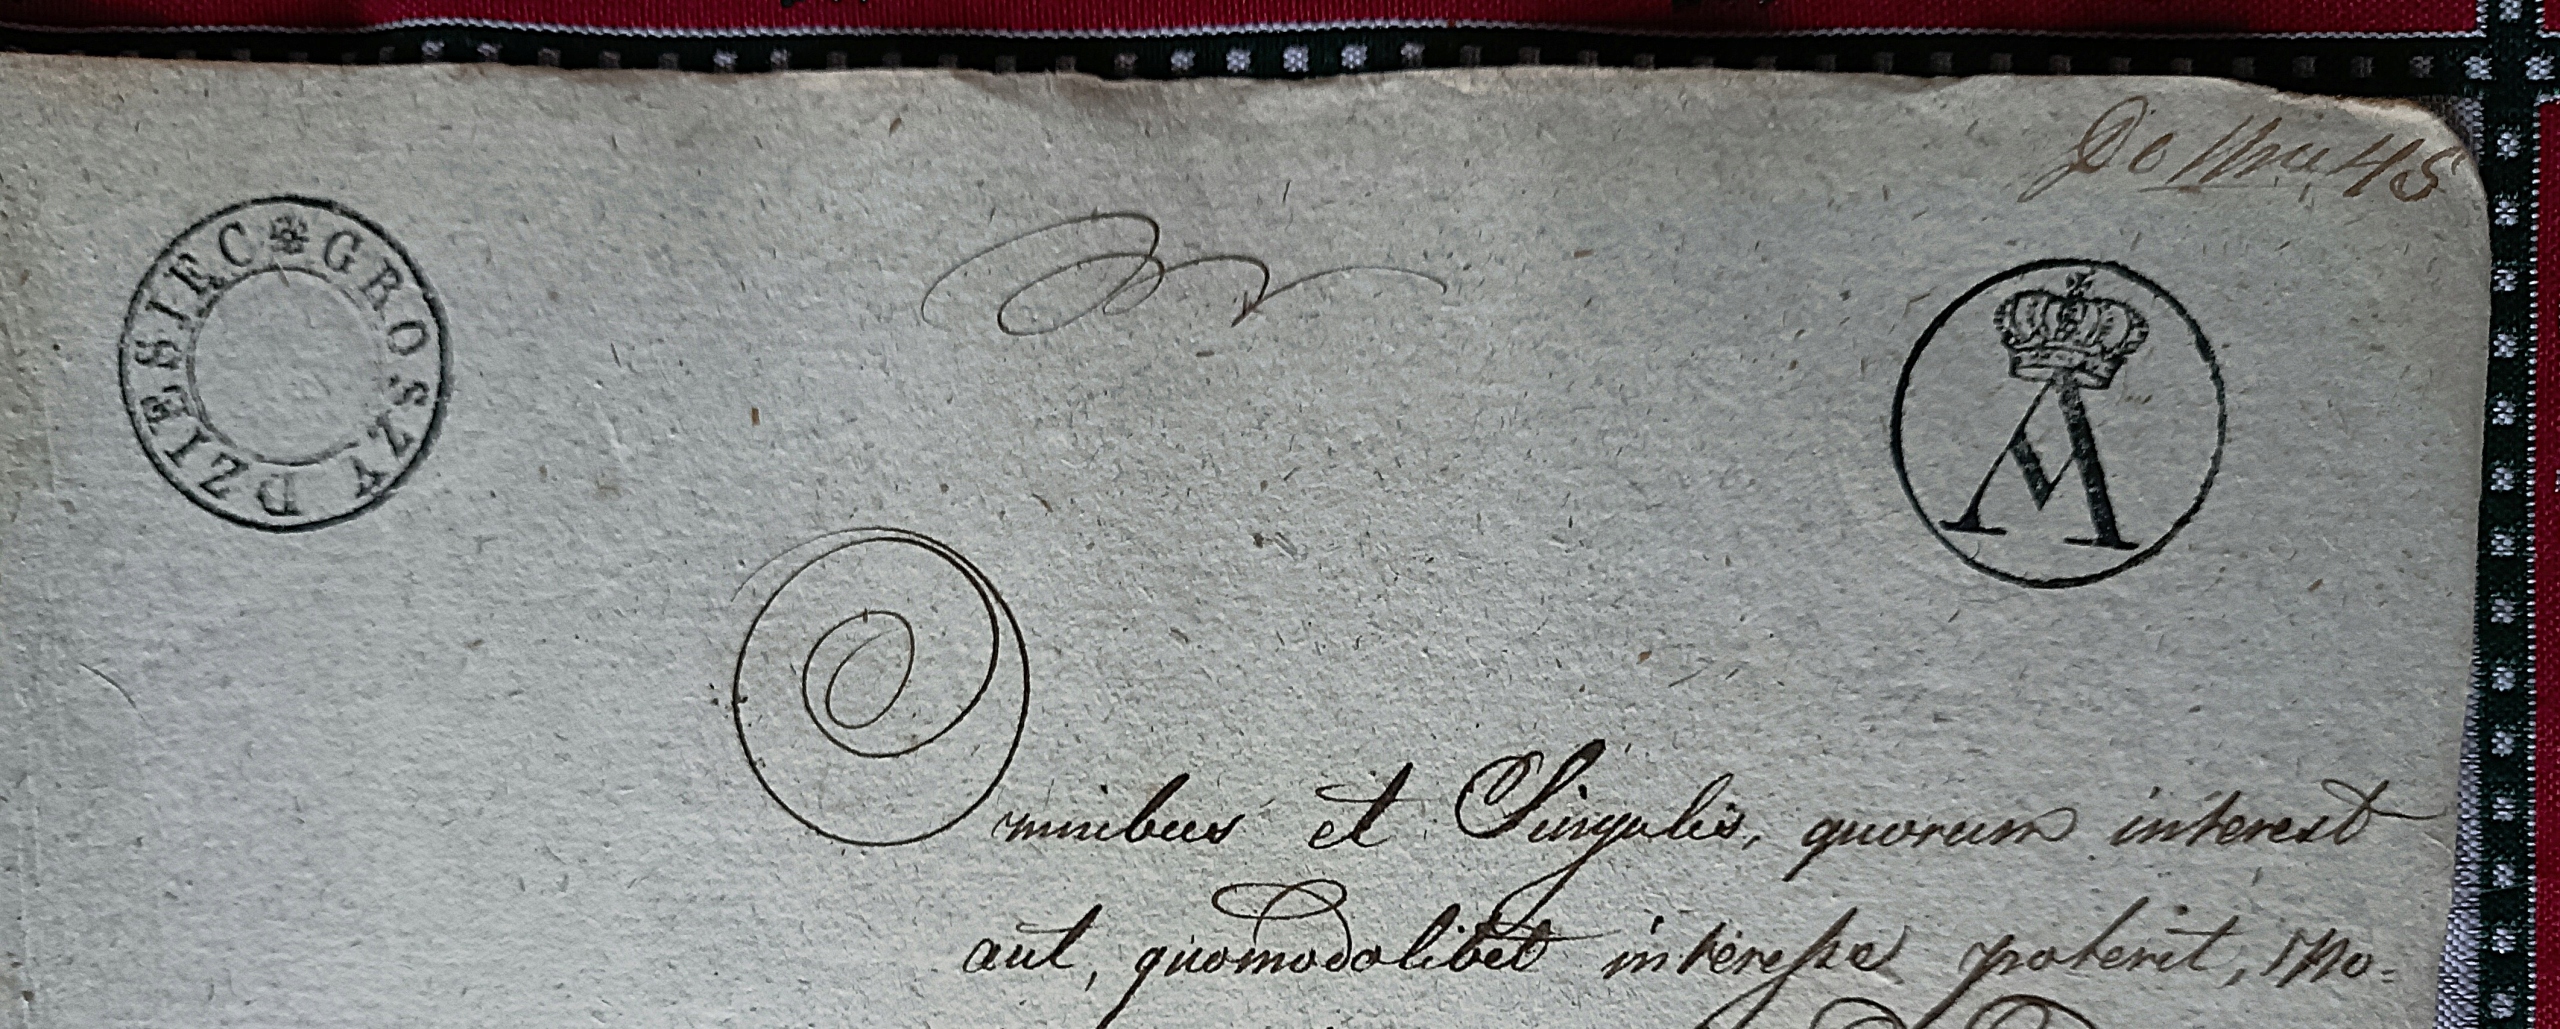 Do Nru 45
GROSZY DZIESIEC
A
Omnibus et Singulis, quorum interest
aut, quomodolibet interesse poterit, No=